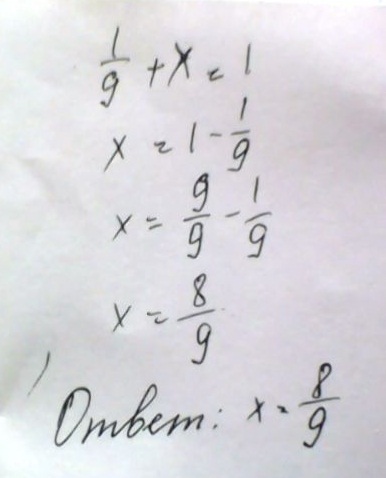 1/9 + x = 1
x = 1 - 1/9
x = 9/9 - 1/9
x = 8/9
Ответ: x = 8/9